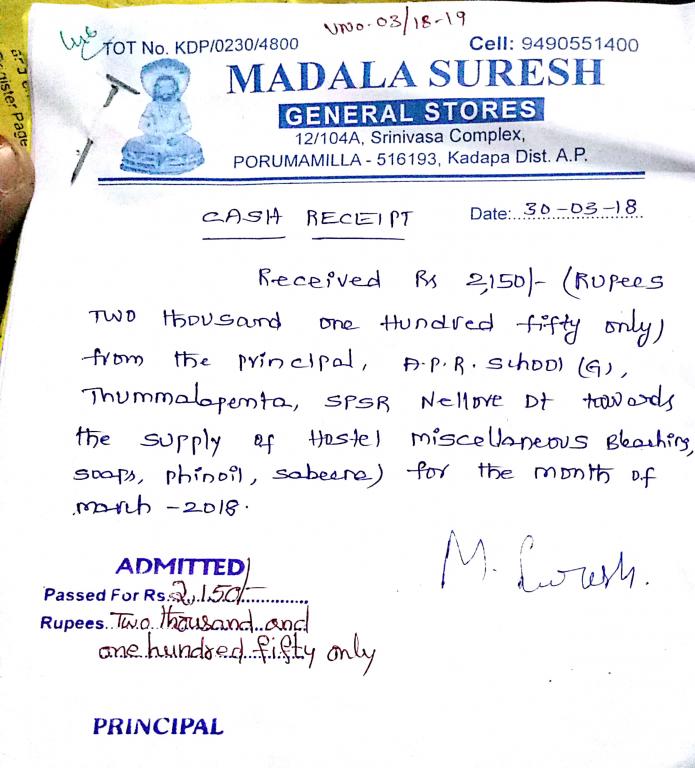 VNo. 03/18-19
TOT No. KDP/0230/4800
Cell: 9490551400
MADALA SURESH
GENERAL STORES
12/104A, Srinivasa Complex,
PORUMAMILLA - 516193, Kadapa Dist. A.P.
CASH RECEIPT
Date: 30-03-18
Received Rs 2,150/- (Rupees
Two thousand one Hundred fifty only)
from the principal, A.P.R. School (G),
Thummalapenta, SPSR Nellore Dt towards
the supply of Hostel miscellaneous Bleaching,
soaps, phinoil, sabeena) for the month of
march - 2018.
M. Suresh.
ADMITTED
Passed For Rs. 2,150/-
Rupees Two thousand and
one hundred fifty only
PRINCIPAL